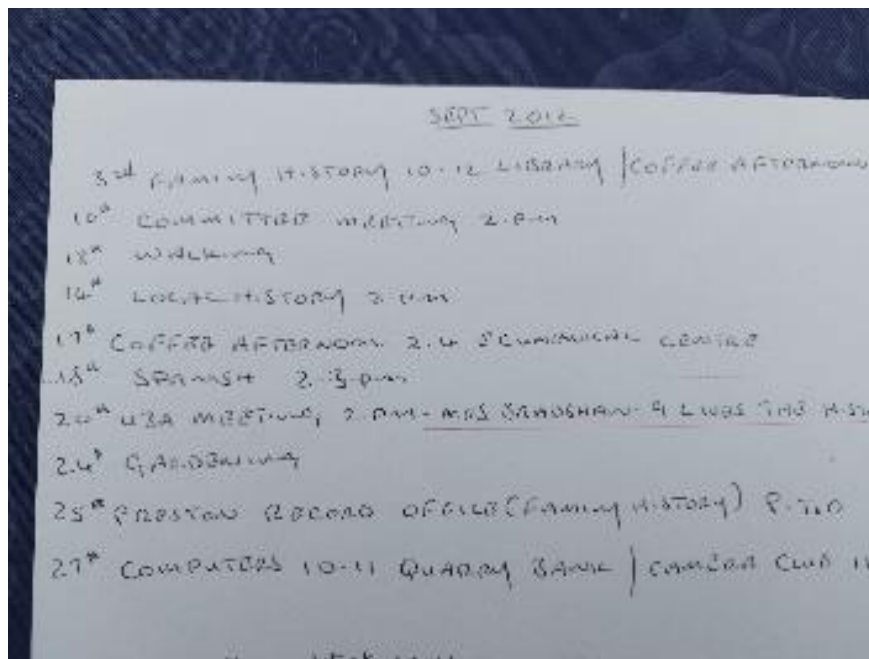 SEPT 2012
3rd FAMILY HISTORY 10-12 LIBRARY / COFFEE AFTERNOON
10th COMMITTEE MEETING 2.PM
WALKING
LOCAL HISTORY 2 PM
17th COFFEE AFTERNOON 2.4 ECUMENICAL CENTRE
18th SPANISH 2.3 PM
20th U3A MEETING, 2 PM - MRS BRADSHAW - 9 LIVES THE
24th GARDENING
25th PRESTON RECORD OFFICE (FAMILY HISTORY) P.T.O
27th COMPUTERS 10-11 QUARRY BANK / CAMERA CLUB